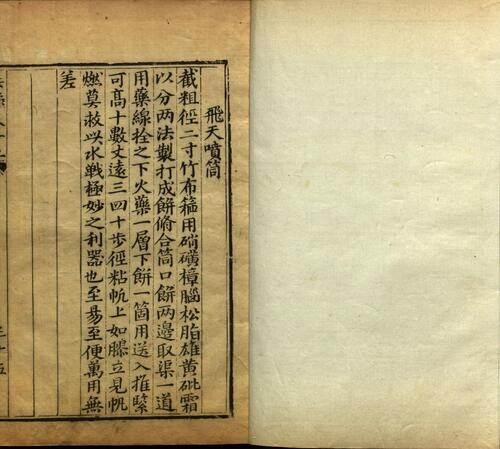 飛天噴筒
截粗徑二寸竹布箍用硝磺樟腦松脂雄黃砒霜
以分兩法製打成餅脩合筒口餅兩邊取渠一道
用藥線拴之下火藥一層下餅一箇用送入推緊
可高十數丈遠三四十步徑粘帆上如膠立見帆
燃莫救此水戰極妙之利器也至易至便萬用無
差